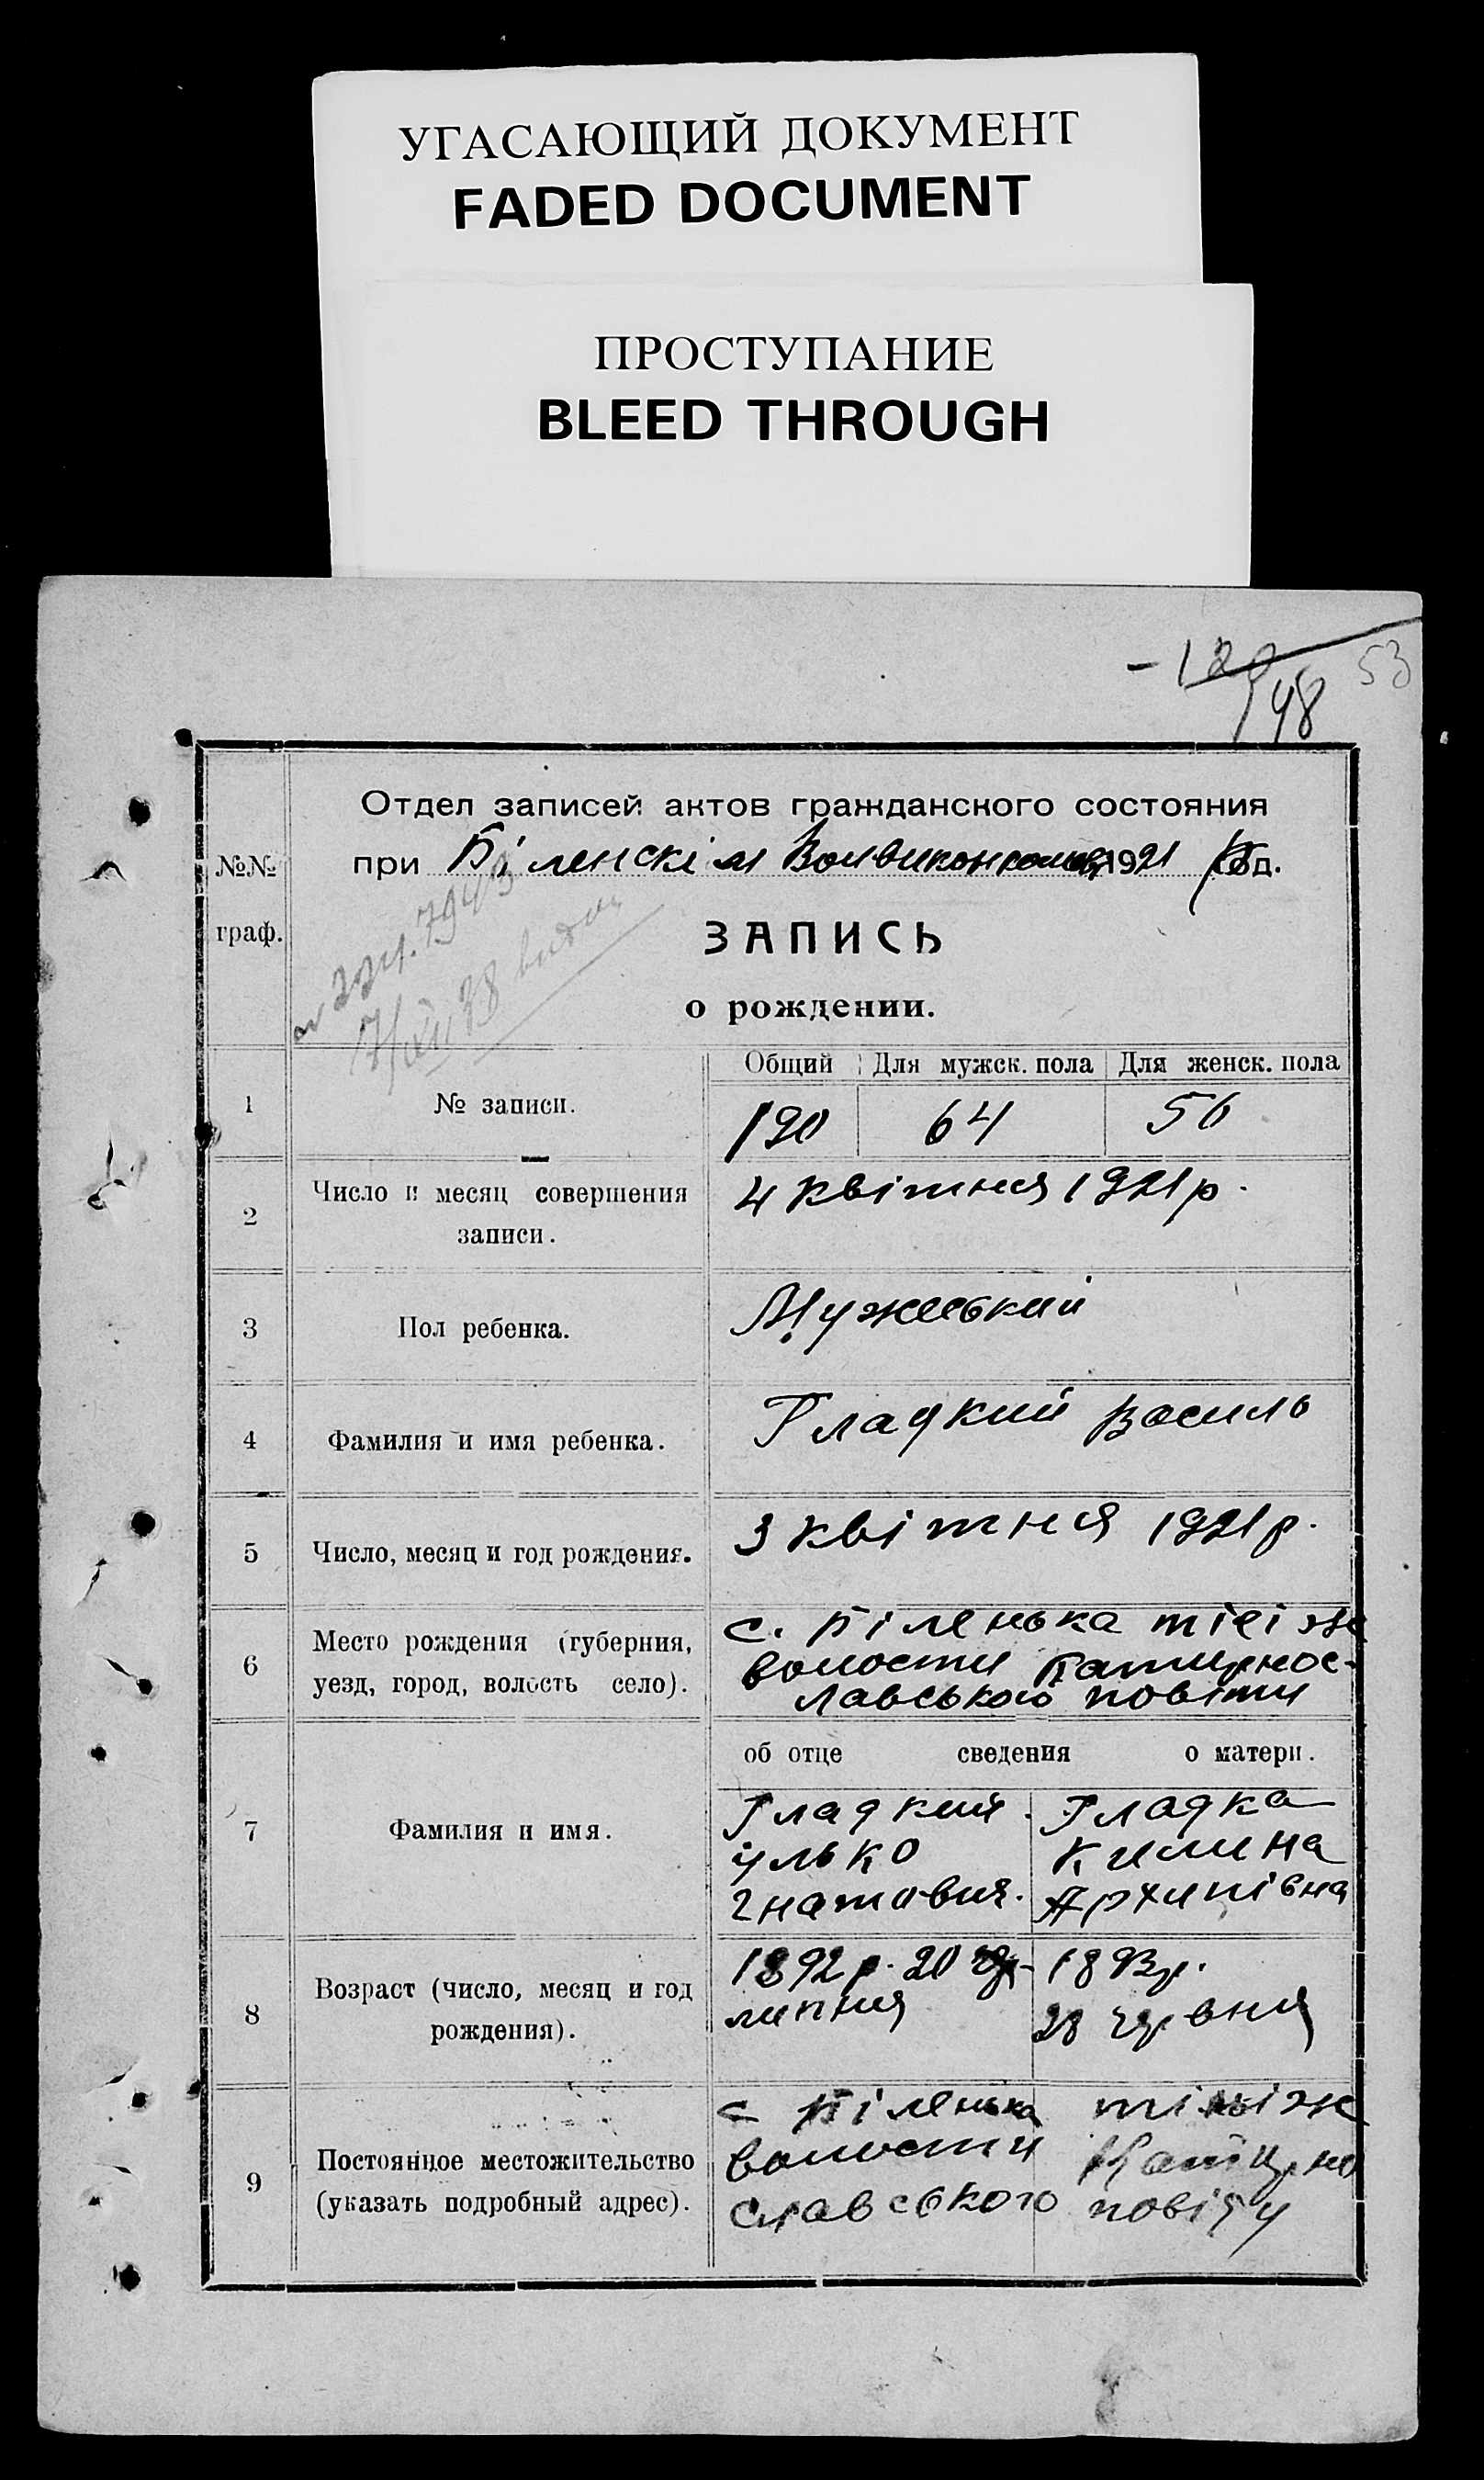 УГАСАЮЩИЙ ДОКУМЕНТ
FADED DOCUMENT
ПРОСТУПАНИЕ
BLEED THROUGH
53
48
Отдел записей актов гражданского состояния
№№ граф.
при Біленскім Волвиконкоме 1921 год.
ЗАПИСЬ
о рождении.
Общий Для мужск. пола Для женск. пола
1 № записи. 120 64 56
2 Число и месяц совершения записи. 4 квітня 1921 р.
3 Пол ребенка. Мужеський
4 Фамилия и имя ребенка. Гладкий Василь
5 Число, месяц и год рождения. 3 квітня 1921 р.
6 Место рождения (губерния, уезд, город, волость село).
с. Біленька тієі же
волости Катиринос-
лавського повіту
об отце сведения о матери.
7 Фамилия и имя.
Гладкий Гладка
Улько Килина
Гнатович. Архипівна
8 Возраст (число, месяц и год рождения).
1892 р. 20 1893 р.
липня 28 червня
9 Постоянное местожительство (указать подробный адрес).
с Біленька тієіж
волости Катирино
славського повіту